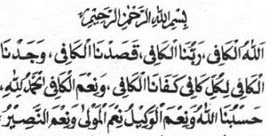 بِسْمِ اللهِ الرَّحْمٰنِ الرَّحِيْمِ
اَللهُ الْكَافِي، رَبُّنَا الْكَافِي، قَصَدْنَا الْكَافِي، وَجَدْنَا
الْكَافِي، لِكُلٍّ كَافِي، كَفَانَا الْكَافِي، وَنِعْمَ الْكَافِي، اَلْحَمْدُ لِلّٰهِ،
حَسْبُنَا اللهُ وَنِعْمَ الْوَكِيْلُ نِعْمَ الْمَوْلٰى وَنِعْمَ النَّصِيْرُ